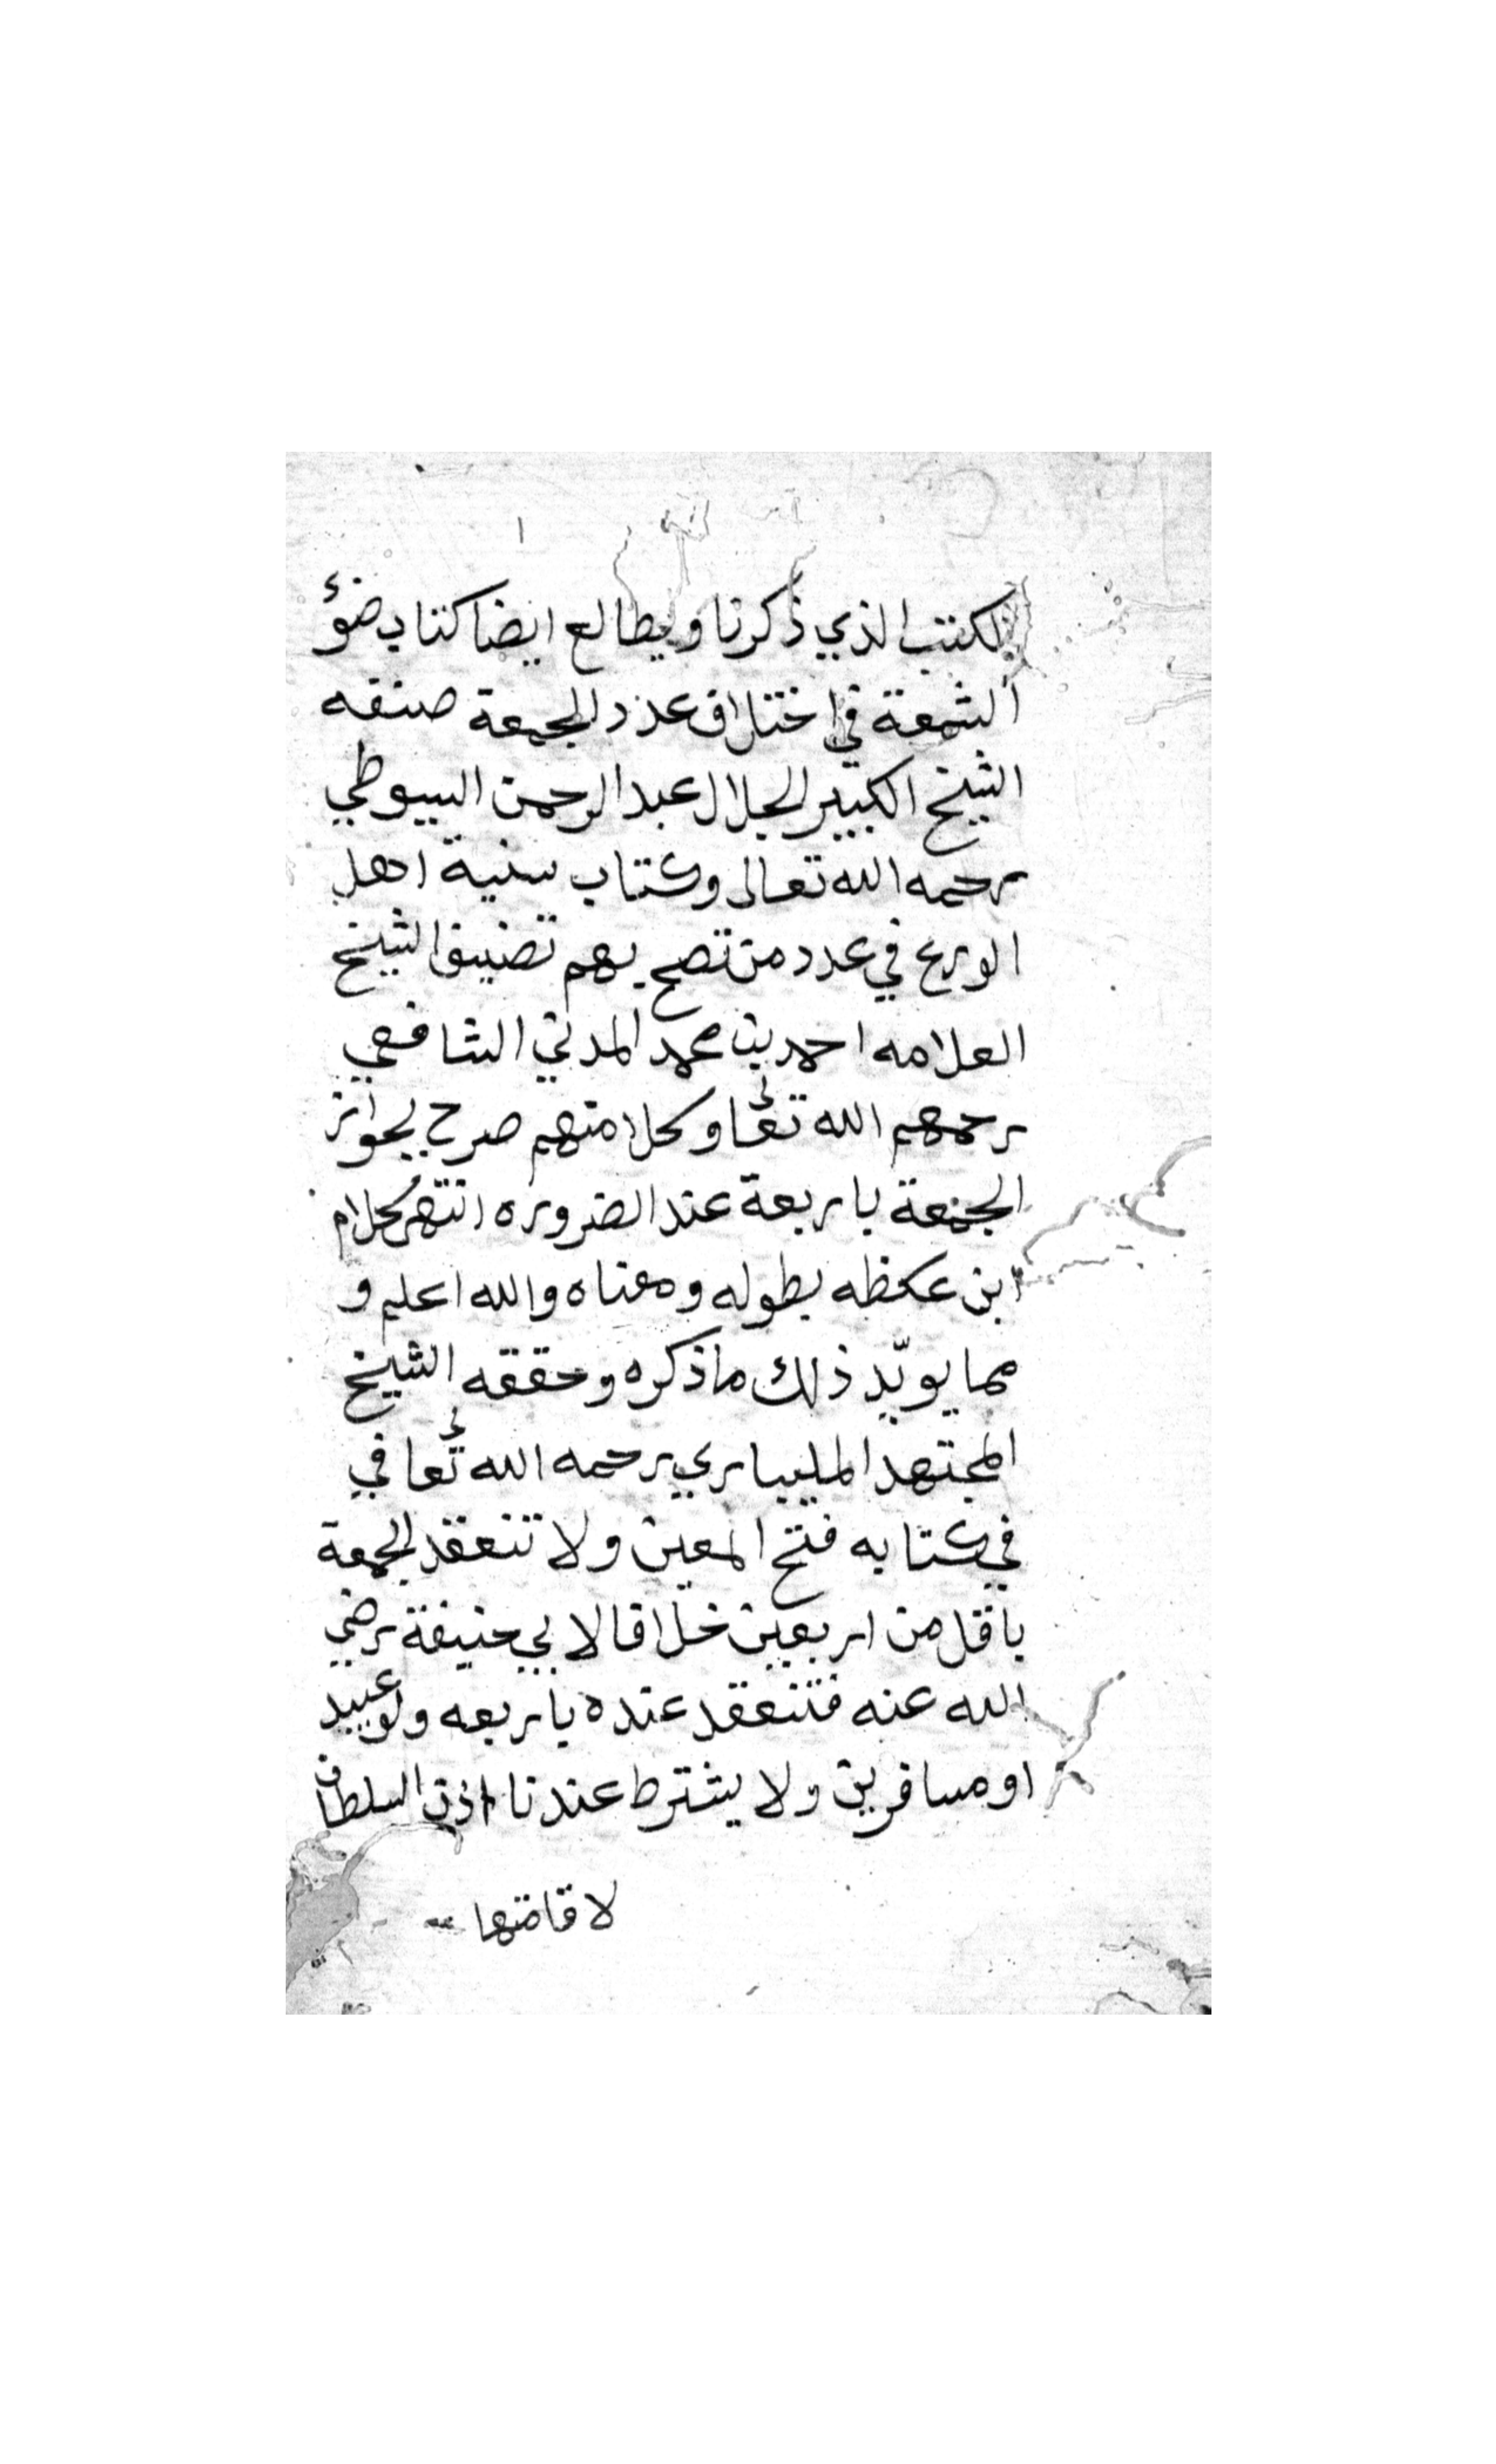 الكتب الذي ذكرنا ويطالع ايضا كتاب ضؤ
الشمعة في اختلاف عدد الجمعة صنفه
الشيخ الكبير الجلال عبد الرحمن السيوطي
رحمه الله تعالى وكتاب سنية اهل
الورع في عدد من تصح بهم تصنيف الشيخ
العلامه احمد بن محمد المدني الشافعي
رحمهم الله تعالى وكلا منهم صرح بجواز
الجمعة باربعة عند الضروره انتهى كلام
ابن عكظه بطوله ومعناه والله اعلم و
مما يويّد ذلك ما ذكره وحققه الشيخ
المجتهد المليباري رحمه الله تعالى في
في كتابه فتح المعين ولا تنعقد الجمعة
باقل من اربعين خلافا لابي حنيفة رضي
الله عنه فتنعقد عنده باربعه ولو عبيد
او مسافرين ولا يشترط عندنا اذن السلطان
لاقامتها